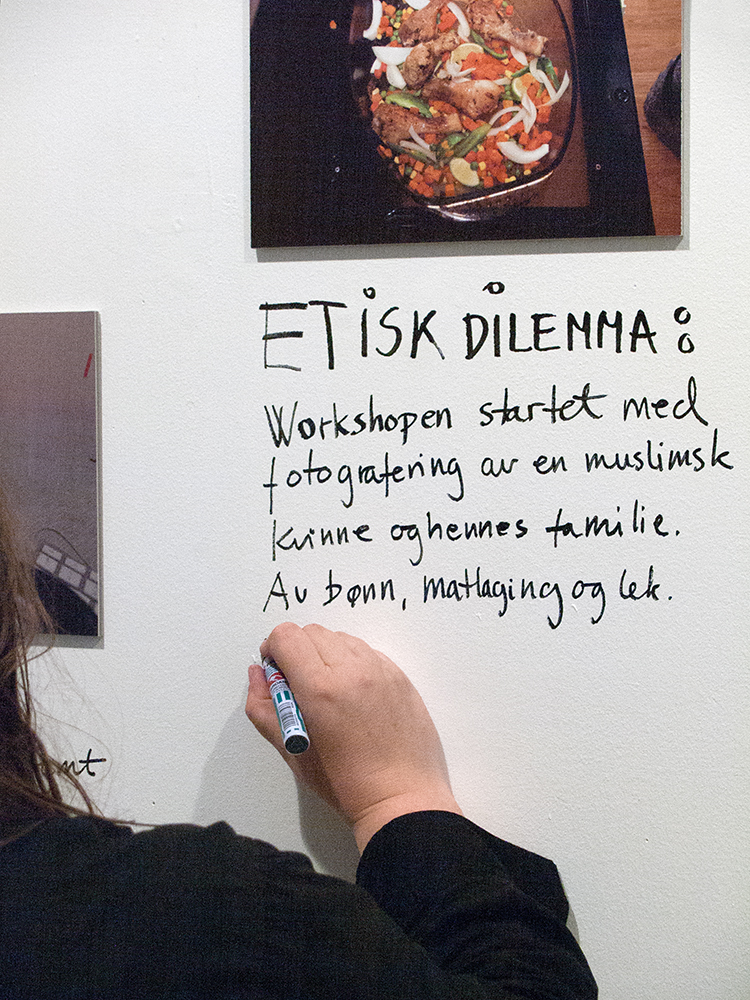 ETiSK DiLEMMA:
Workshopen startet med
fotografering av en muslimsk
kvinne og hennes familie.
Av bønn, matlaging og lek.